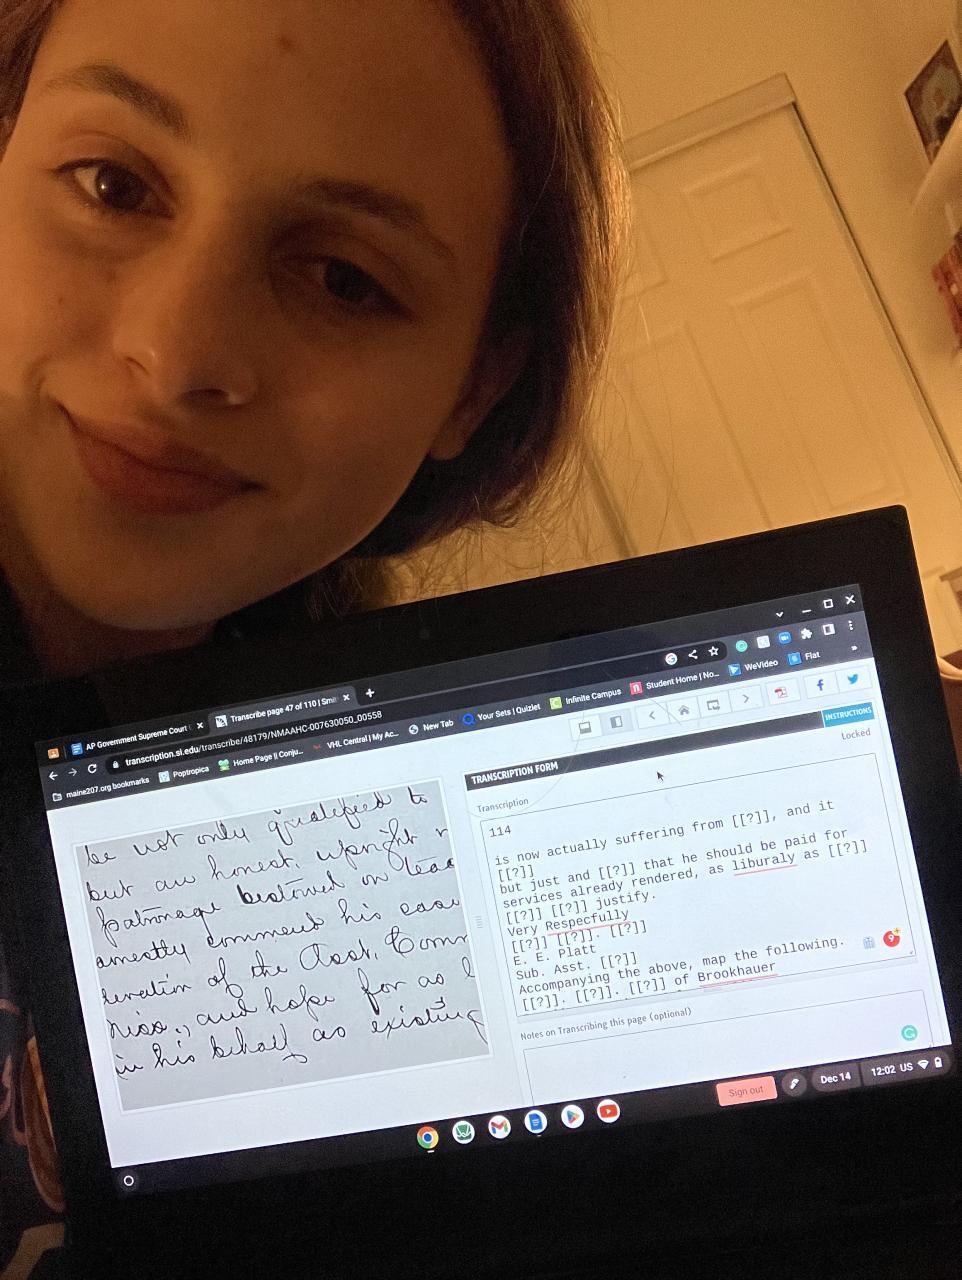 AP Government Supreme Court
Transcribe page 47 of 110 | Smi
transcription.si.edu/transcribe/48179/NMAAHC-007630050_00558
maine207.org bookmarks
Poptropica
Home Page || Conju...
VHL Central | My Ac...
New Tab
Your Sets | Quizlet
Infinite Campus
Student Home | No...
WeVideo
Flat
»
be not only qualified to
but an honest, upright
patronage bestowed on
earnestly commend his case
of the Asst. Comr
miss., and hope for as
in his behalf as existing
TRANSCRIPTION FORM
INSTRUCTIONS
Locked
Transcription
114
is now actually suffering from [[?]], and it
[[?]]
but just and [[?]] that he should be paid for
services already rendered, as liburaly as [[?]]
[[?]] [[?]] justify.
Very Respecfully
[[?]] [[?]]. [[?]]
E. E. Platt
Sub. Asst. [[?]]
Accompanying the above, map the following.
[[?]]. [[?]]. [[?]] of Brookhauer
9+
Notes on Transcribing this page (optional)
Sign out
Dec 14
12:02 US